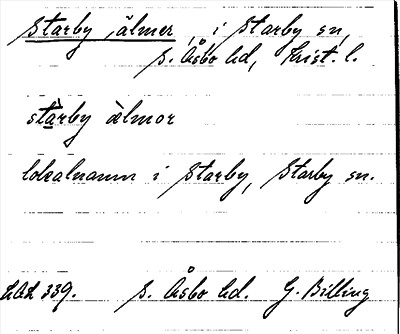 Starby älmer, i Starby sn,
S. Åsbo hd, Krist. l.
stàrby àlmor
lokalnamn i Starby, Starby sn.
LAL 339. S. Åsbo hd. G. Billing